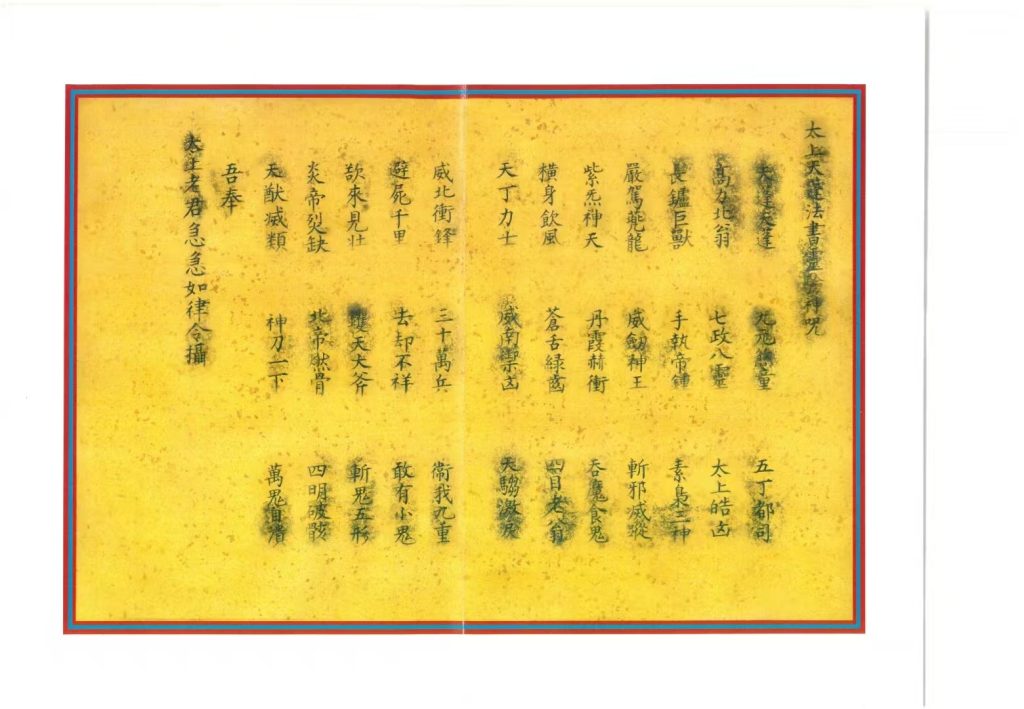 太上天蓬法書靈 神咒
天蓬天蓬 九 童 五丁都司
高刀北翁 七政八靈 太上皓凶
長鑪巨獸 手執帝鍾 素梟三神
嚴駕夔龍 威劒神王 斬邪滅蹤
紫炁神天 丹霞赫衝 吞魔食鬼
橫身飲風 蒼舌綠齒 四目老翁
天丁力士 威南禦凶 天騶激戾
威北衝鋒 三十萬兵 衞我九重
避屍千里 去却不祥 敢有小鬼
欲來見壯 天大斧 斬鬼五形
炎帝烈缺 北帝燃骨 四明破骸
天猷威類 神刀一下 萬鬼自潰
吾奉
太上老君急急如律令攝